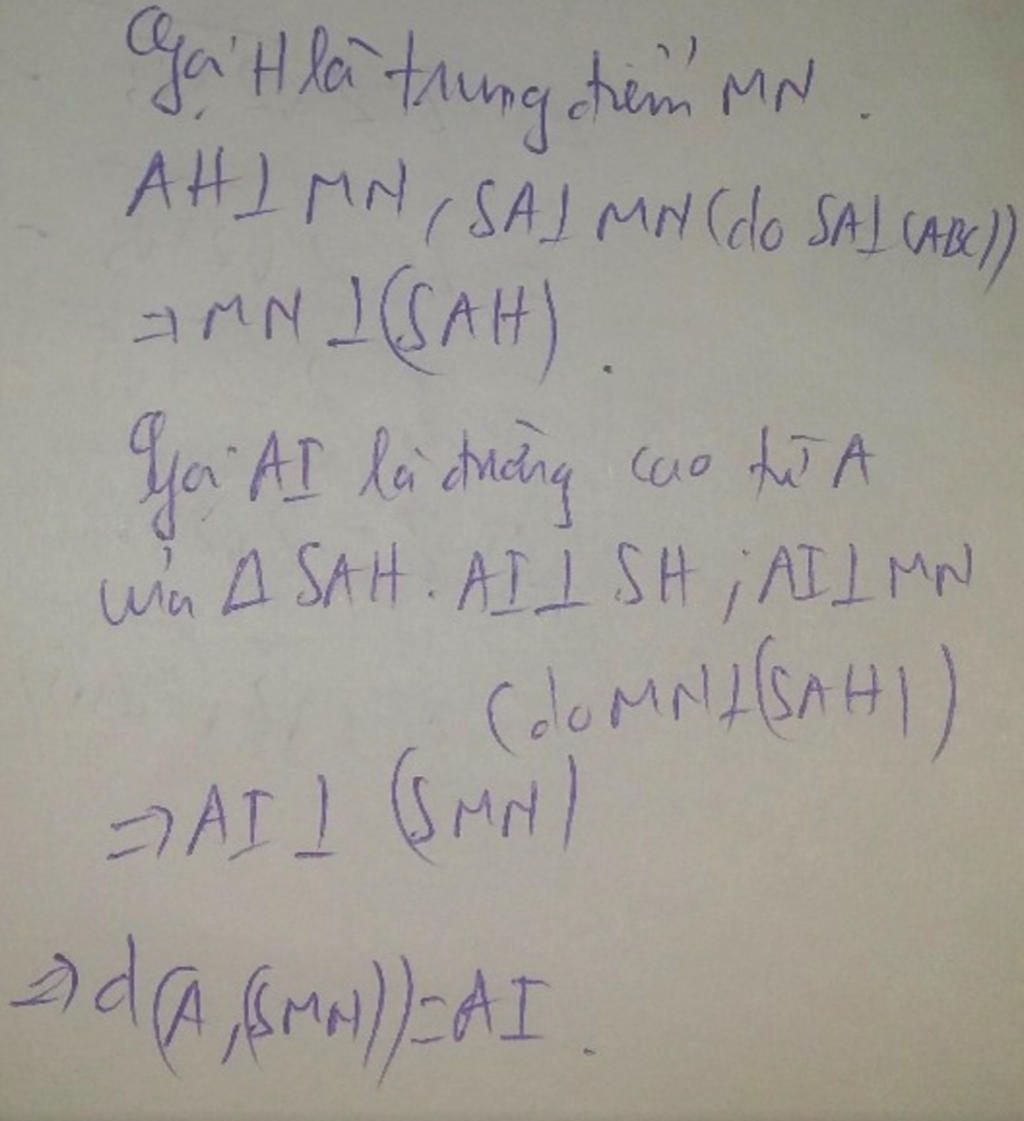 Gọi H là trung điểm MN.
AH⊥MN, SA⊥MN (do SA⊥(ABC))
⇒MN⊥(SAH).
Gọi AI là đường cao từ A
của Δ SAH. AI⊥SH; AI⊥MN
(do MN⊥(SAH))
⇒AI⊥(SMN)
⇒d(A,(SMN))=AI.